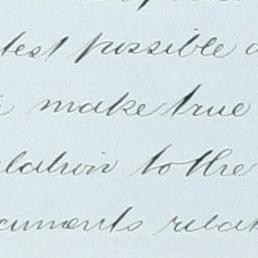 test possible
make true
lation to the
cuments relat